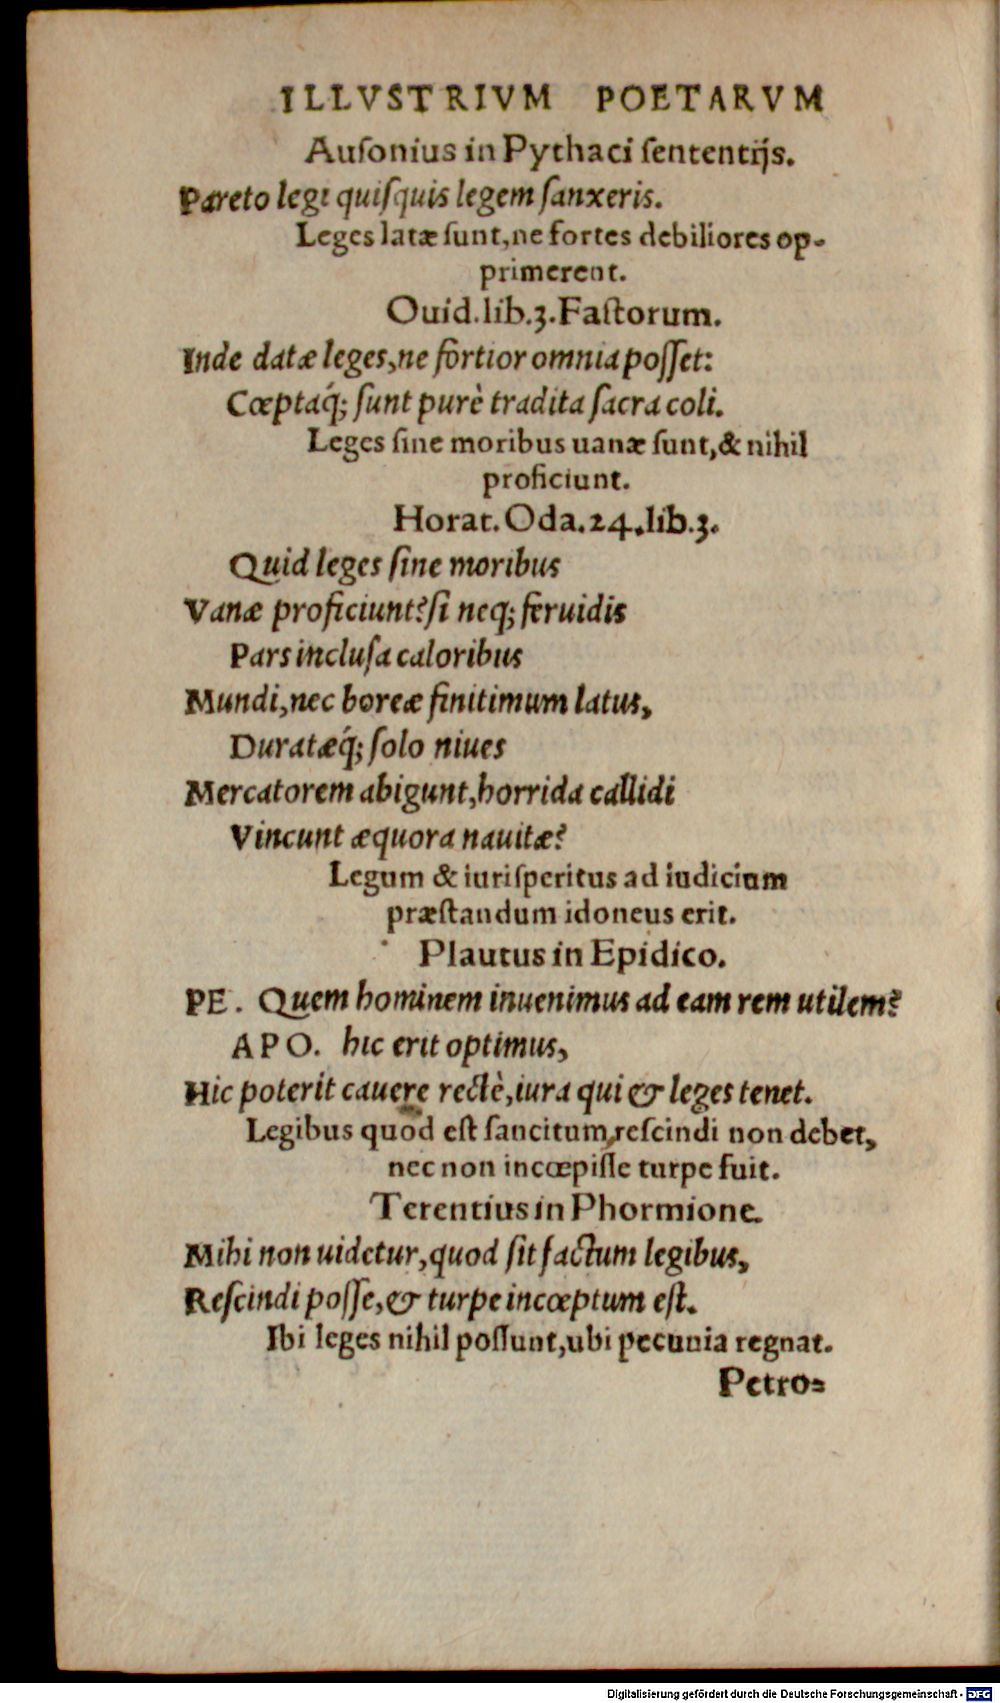 ILLVSTRIVM POETARVM
Auſonius in Pythaci ſententijs.
Pareto legi quiſquis legem ſanxeris.
Leges latæ ſunt, ne fortes debiliores op-
primerent.
Ouid. lib. 3. Faſtorum.
Inde datæ leges, ne fortior omnia poſſet:
Cœptaq́; ſunt purè tradita ſacra coli.
Leges ſine moribus uanæ ſunt, & nihil
proficiunt.
Horat. Oda. 24. lib. 3.
Quid leges ſine moribus
Vanæ proficiunt? ſi neq; feruidis
Pars incluſa caloribus
Mundi, nec boreæ finitimum latus,
Duratæq́; ſolo niues
Mercatorem abigunt, horrida callidi
Vincunt æquora nauitæ?
Legum & iuriſperitus ad iudicium
præſtandum idoneus erit.
Plautus in Epidico.
PE. Quem hominem inuenimus ad eam rem utilem?
APO. hic erit optimus,
Hic poterit cauere rectè, iura qui & leges tenet.
Legibus quod eſt ſancitum, reſcindi non debet,
nec non incœpiſſe turpe fuit.
Terentius in Phormione.
Mihi non uidetur, quod ſit factum legibus,
Reſcindi poſſe, & turpe incœptum eſt.
Ibi leges nihil poſſunt, ubi pecunia regnat.
Petro-
Digitalisierung gefördert durch die Deutsche Forschungsgemeinschaft - DFG